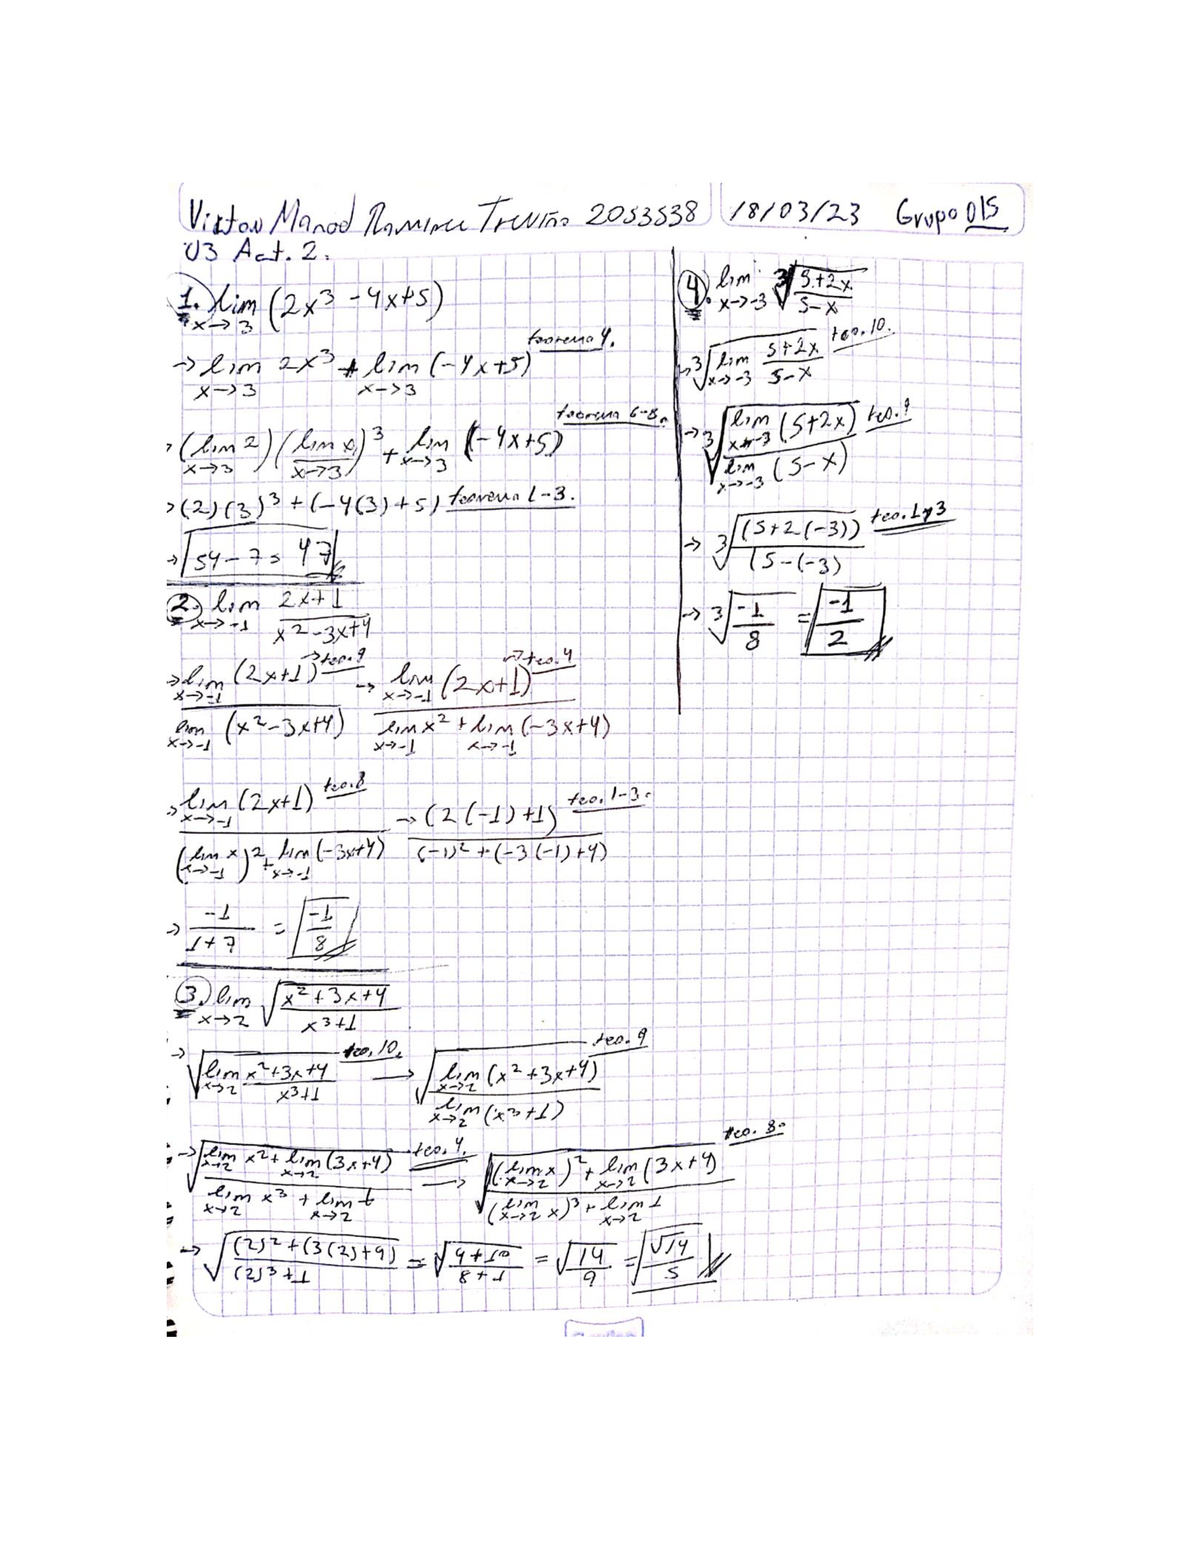 Ramirez Treviño 2053538 18/03/23 Grupo 015
U3 Act. 2.
1. lim x->3 (2x³ - 4x+5)
-> lim x->3 2x³ + lim x->3 (-4x+5) teorema 4.
-> (lim x->3 2)(lim x->3 x)³ + lim x->3 (-4x+5) teorema 6-8.
-> (2)(3)³ + (-4(3)+5) teorema 1-3.
-> 54-7= 47
2. lim x->-1 2x+1 / x²-3x+4
-> lim x->-1 (2x+1) / lim x->-1 (x²-3x+4) -> teo. 9 -> lim x->-1 (2x+1) / lim x->-1 x² + lim x->-1 (-3x+4) -> teo. 4
-> lim x->-1 (2x+1) / (lim x->-1 x)² + lim x->-1 (-3x+4) teo. 8 -> (2(-1)+1) / (-1)² + (-3(-1)+4) teo. 1-3.
-> -1 / 1+7 = -1/8
3. lim x->2 √ x²+3x+4 / x³+1
-> √ lim x->2 x²+3x+4 / x³+1 teo. 10. -> √ lim x->2 (x²+3x+4) / lim x->2 (x³+1) teo. 9
-> √ lim x->2 x² + lim x->2 (3x+4) / lim x->2 x³ + lim x->2 1 teo. 4. -> √ (lim x->2 x)² + lim x->2 (3x+4) / (lim x->2 x)³ + lim x->2 1 teo. 8.
-> √ (2)² + (3(2)+4) / (2)³+1 = √ 4+10 / 8+1 = √ 14/9 = √14 / 5
4. lim x->-3 ³√ 5+2x / 5-x
-> ³√ lim x->-3 5+2x / 5-x teo. 10.
-> ³√ lim x->-3 (5+2x) / lim x->-3 (5-x) teo. 9
-> ³√ (5+2(-3)) / (5-(-3) teo. 1y3
-> ³√ -1/8 = -1/2